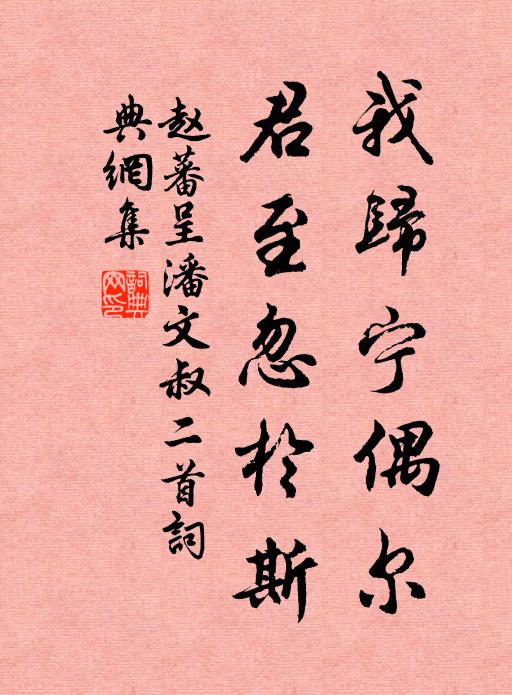 我歸宁偶尔
君至忽於斯
赵蕃呈潘文叔二首詞
典網集
詞典
网印